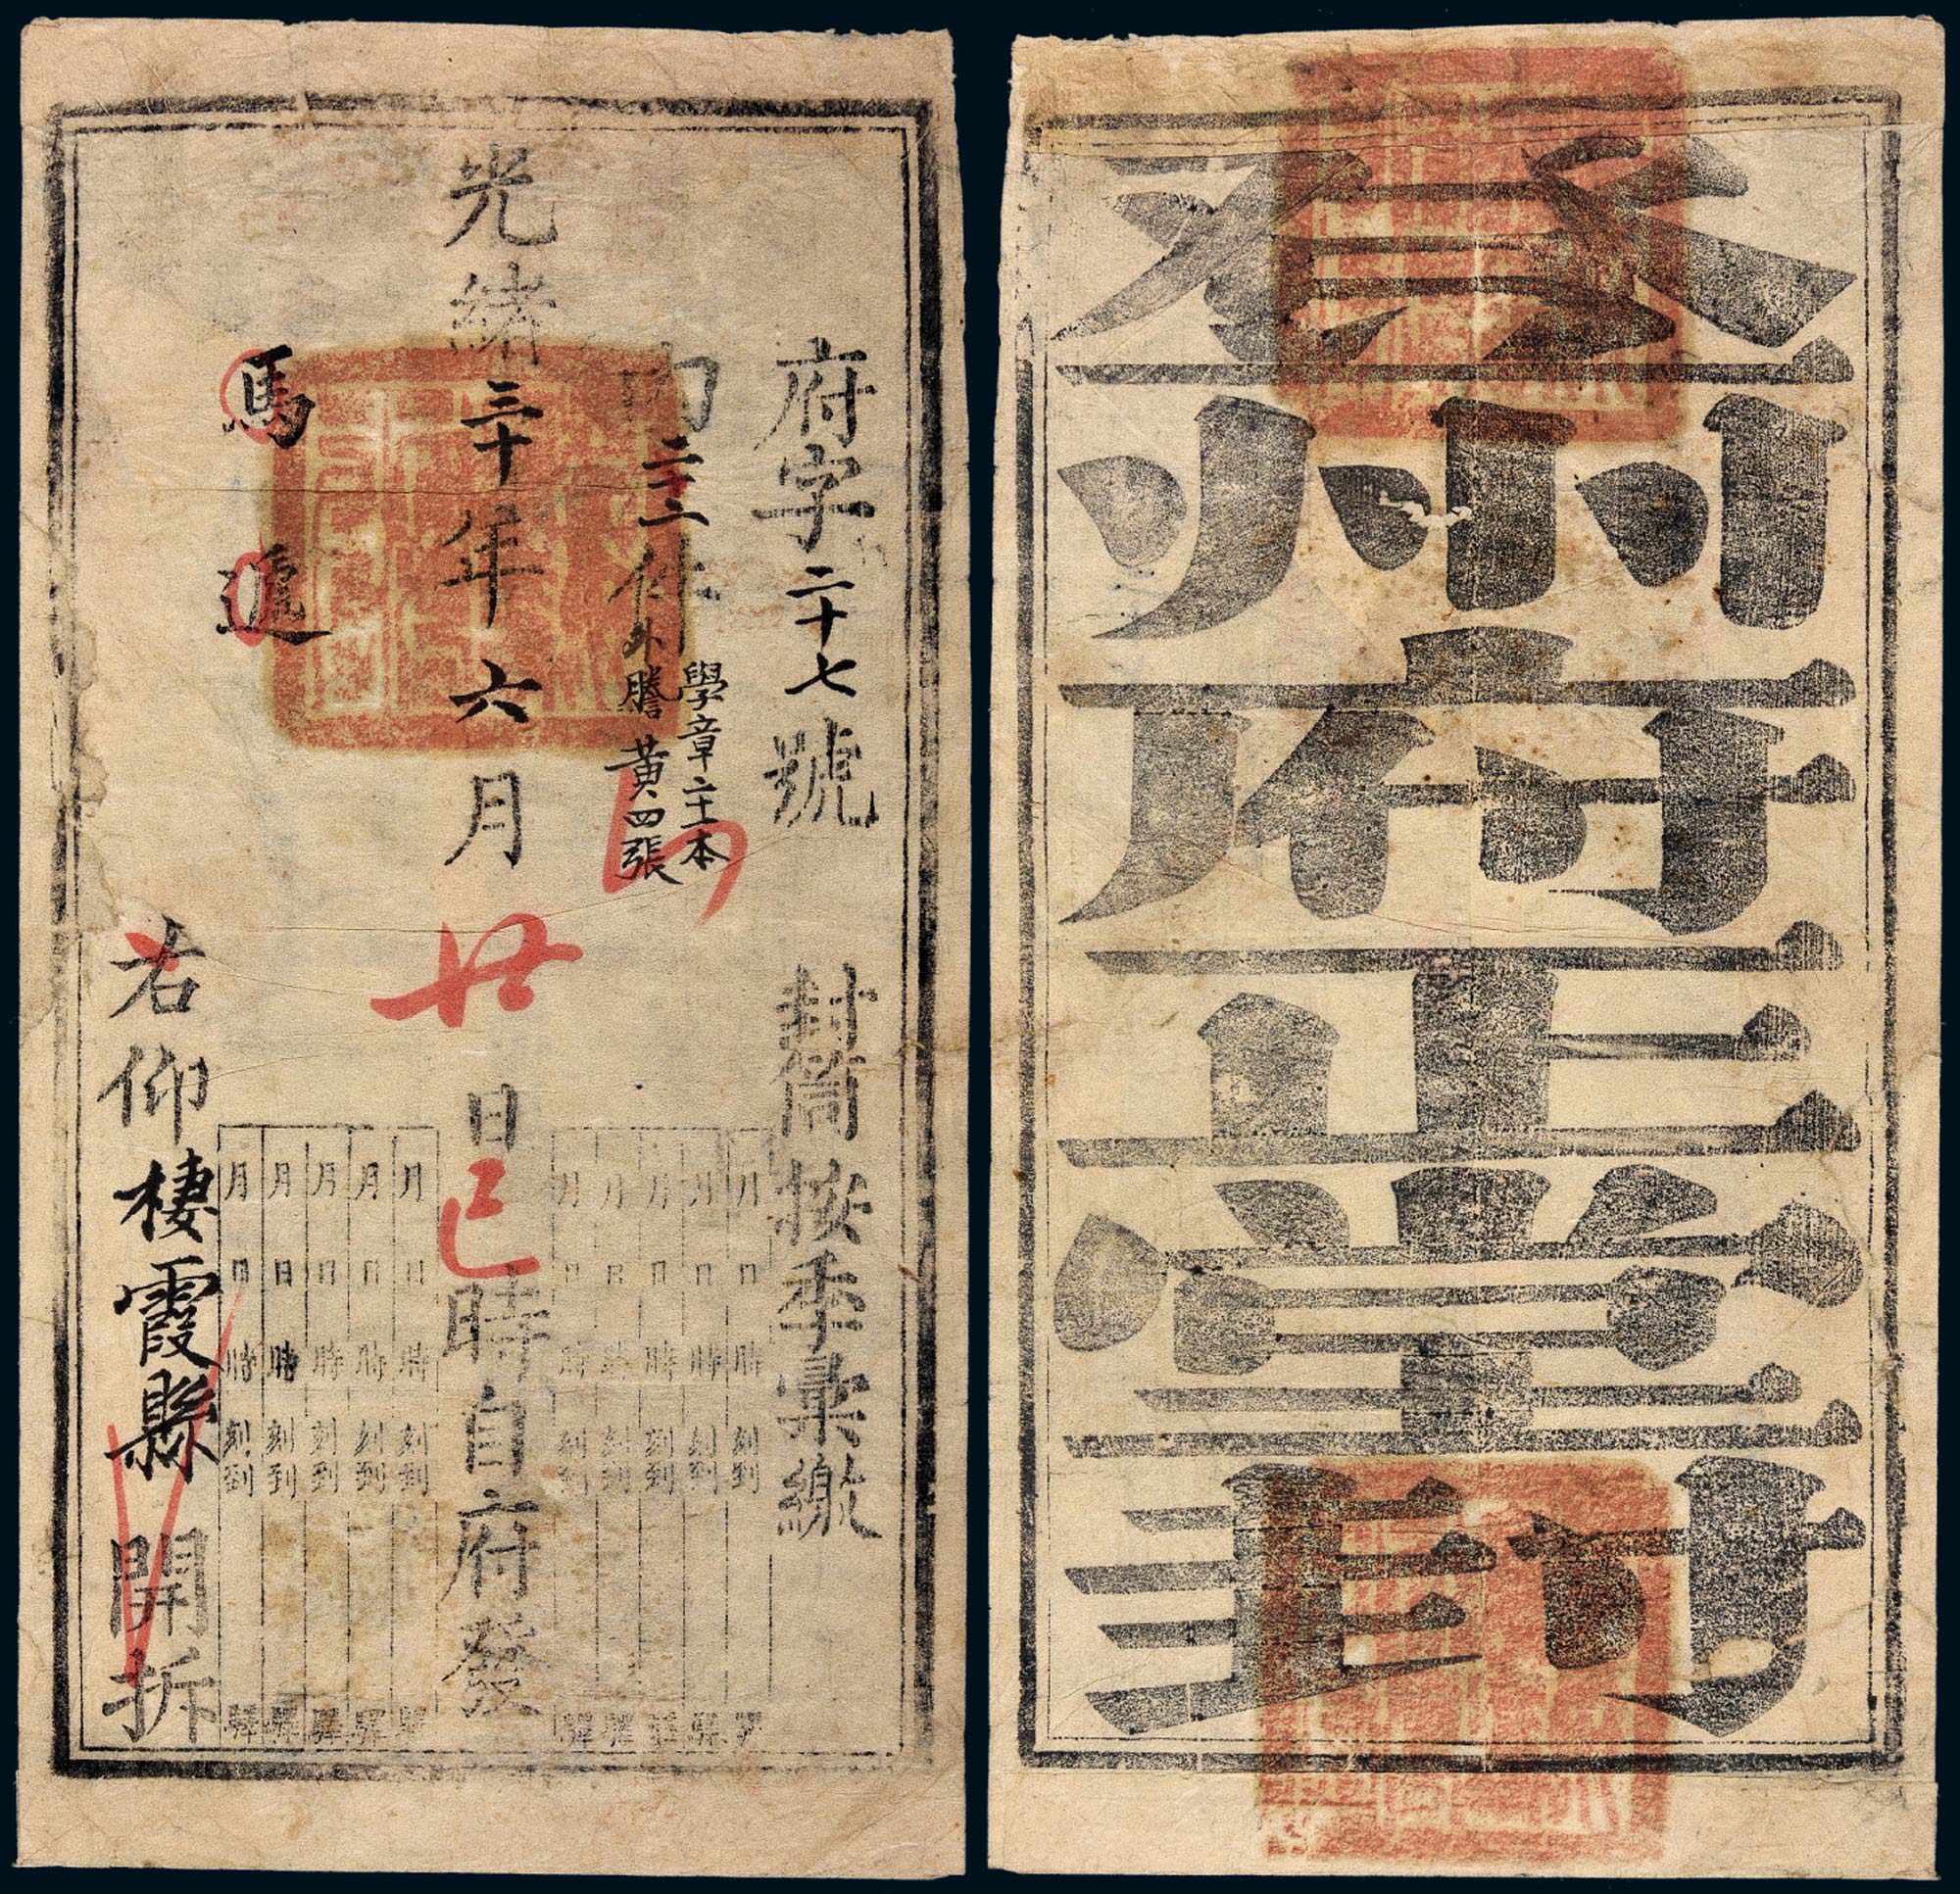 府字二十七號 封筒按季彙繳
內二十一件外
學章二十一本
謄黃四張
月日時刻到驛
月日時刻到驛
月日時刻到驛
月日時刻到驛
月日時刻到驛
光緒三十年六月廿日巳時自府發
月日時刻到驛
月日時刻到驛
月日時刻到驛
月日時刻到驛
月日時刻到驛
馬遞
右仰棲霞縣開拆
登州府正堂封